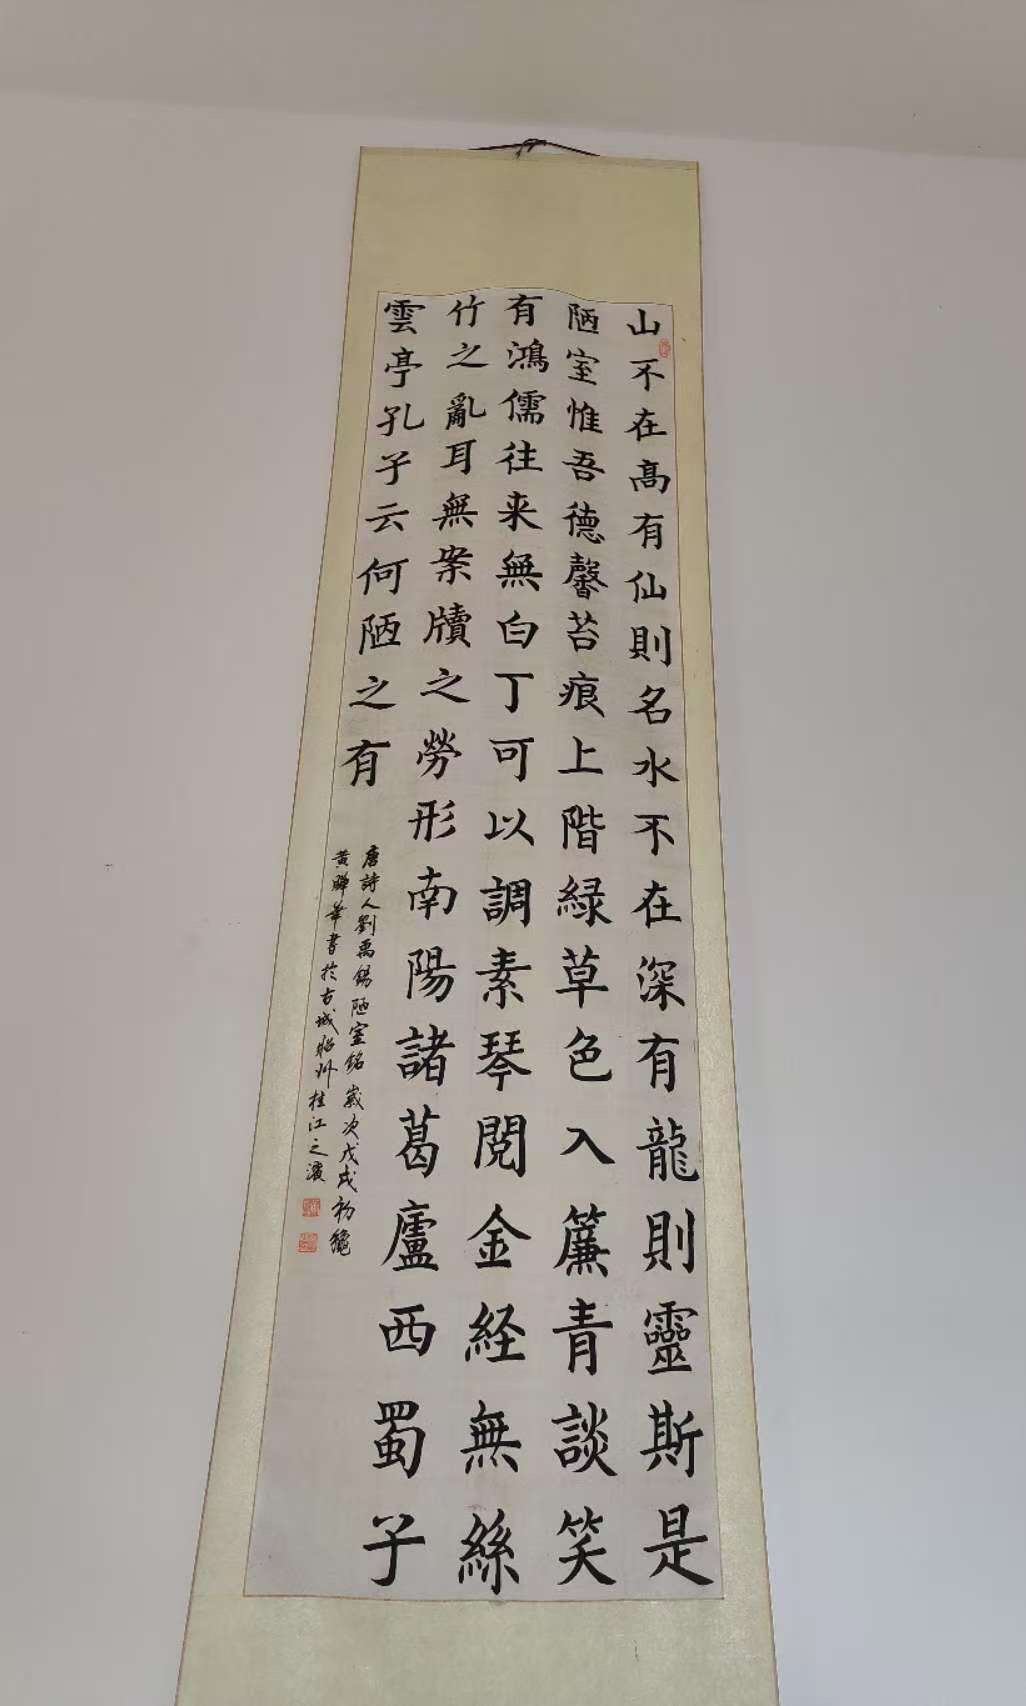 山不在高有仙則名水不在深有龍則靈斯是
陋室惟吾德馨苔痕上階緑草色入簾青談笑
有鴻儒往来無白丁可以調素琴閱金経無絲
竹之亂耳無案牘之勞形南陽諸葛廬西蜀子
雲亭孔子云何陋之有
唐詩人劉禹錫陋室銘歲次戊戌初龝
黃曄華書於古城昭州桂江之濱